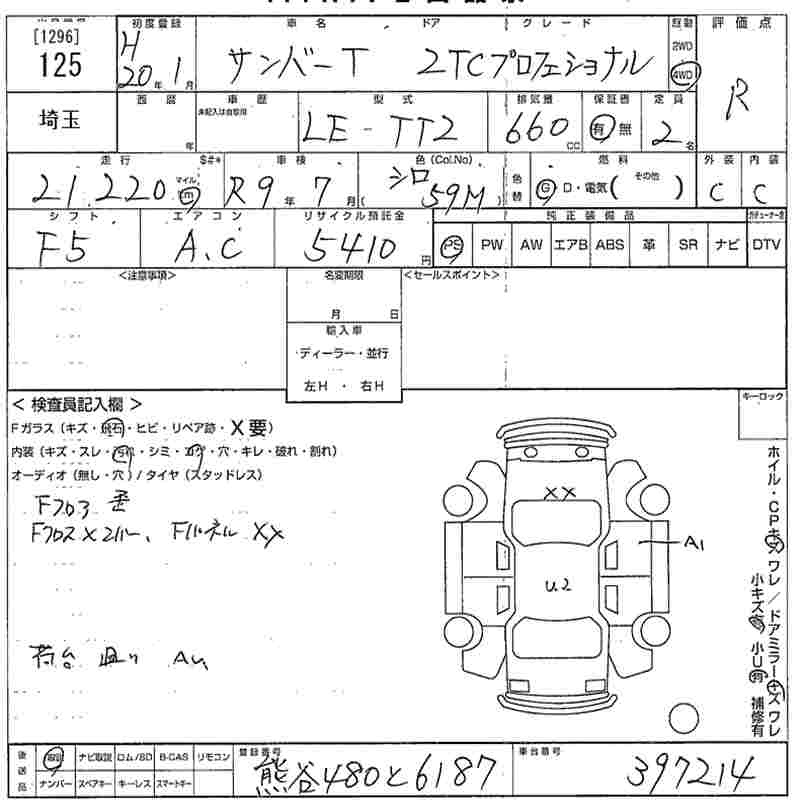 [1296] 初度登録 車名 ドア グレード 駆動 評価点
125 H 20年 1月 サンバーT 2TCプロフェショナル 2WD 4WD R
埼玉 西暦 年 車歴 未記入は自家用 型式 LE-TT2 排気量 660 CC 保証書 有 無 定員 2名
走行 21,220 マイル km $#* 車検 R9年 7月 色(Col.No) シロ 59M 色替 燃料 G・D・電気( その他 ) 外装 C 内装 C
シフト F5 エアコン A.C リサイクル預託金 5410円 純正装備品 PS PW AW エアB ABS 革 SR ナビ DTV
<注意事項> 名変期限 <セールスポイント>
月 日
輸入車
ディーラー・並行
左H ・ 右H
< 検査員記入欄 > キーロック
Fガラス(キズ・飛石・ヒビ・リペア跡・X要)
内装(キズ・スレ・汚れ・シミ・コゲ・穴・キレ・破れ・割れ)
オーディオ(無し・穴)/タイヤ(スタッドレス)
XX
A1
U2
ホイル・CPキズ ワレ/ドアミラーキズ ワレ
小キズ有 小U有 補修有
後送品 取説 ナビ取説 ロム/SD B-CAS リモコン 登録番号 車台番号
ナンバー スペアキー キーレス スマートキー 熊谷480と6187 397214